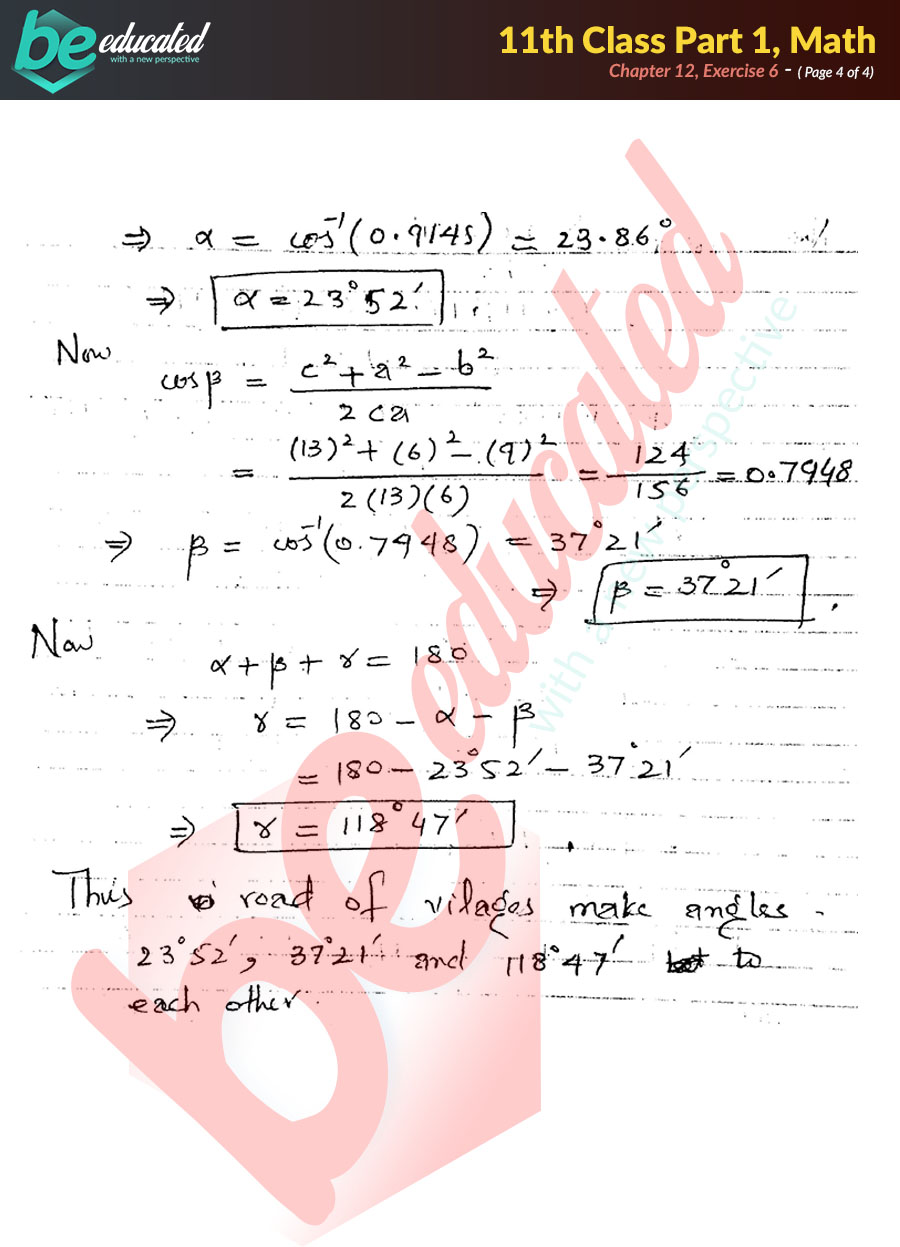 be educated
with a new perspective
11th Class Part 1, Math
Chapter 12, Exercise 6 - ( Page 4 of 4)
⇒ α = cos⁻¹(0.9145) = 23.86°
⇒ α = 23°52′
Now
cos β = (c² + a² − b²) / 2ca
= ((13)² + (6)² − (9)²) / 2(13)(6) = 124/156 = 0.7948
⇒ β = cos⁻¹(0.7948) = 37°21′
⇒ β = 37°21′
Now
α + β + γ = 180
⇒ γ = 180 − α − β
= 180 − 23°52′ − 37°21′
⇒ γ = 118°47′
Thus road of vilages make angles
23°52′, 37°21′ and 118°47′ to
each other.
be educated
with a new perspective